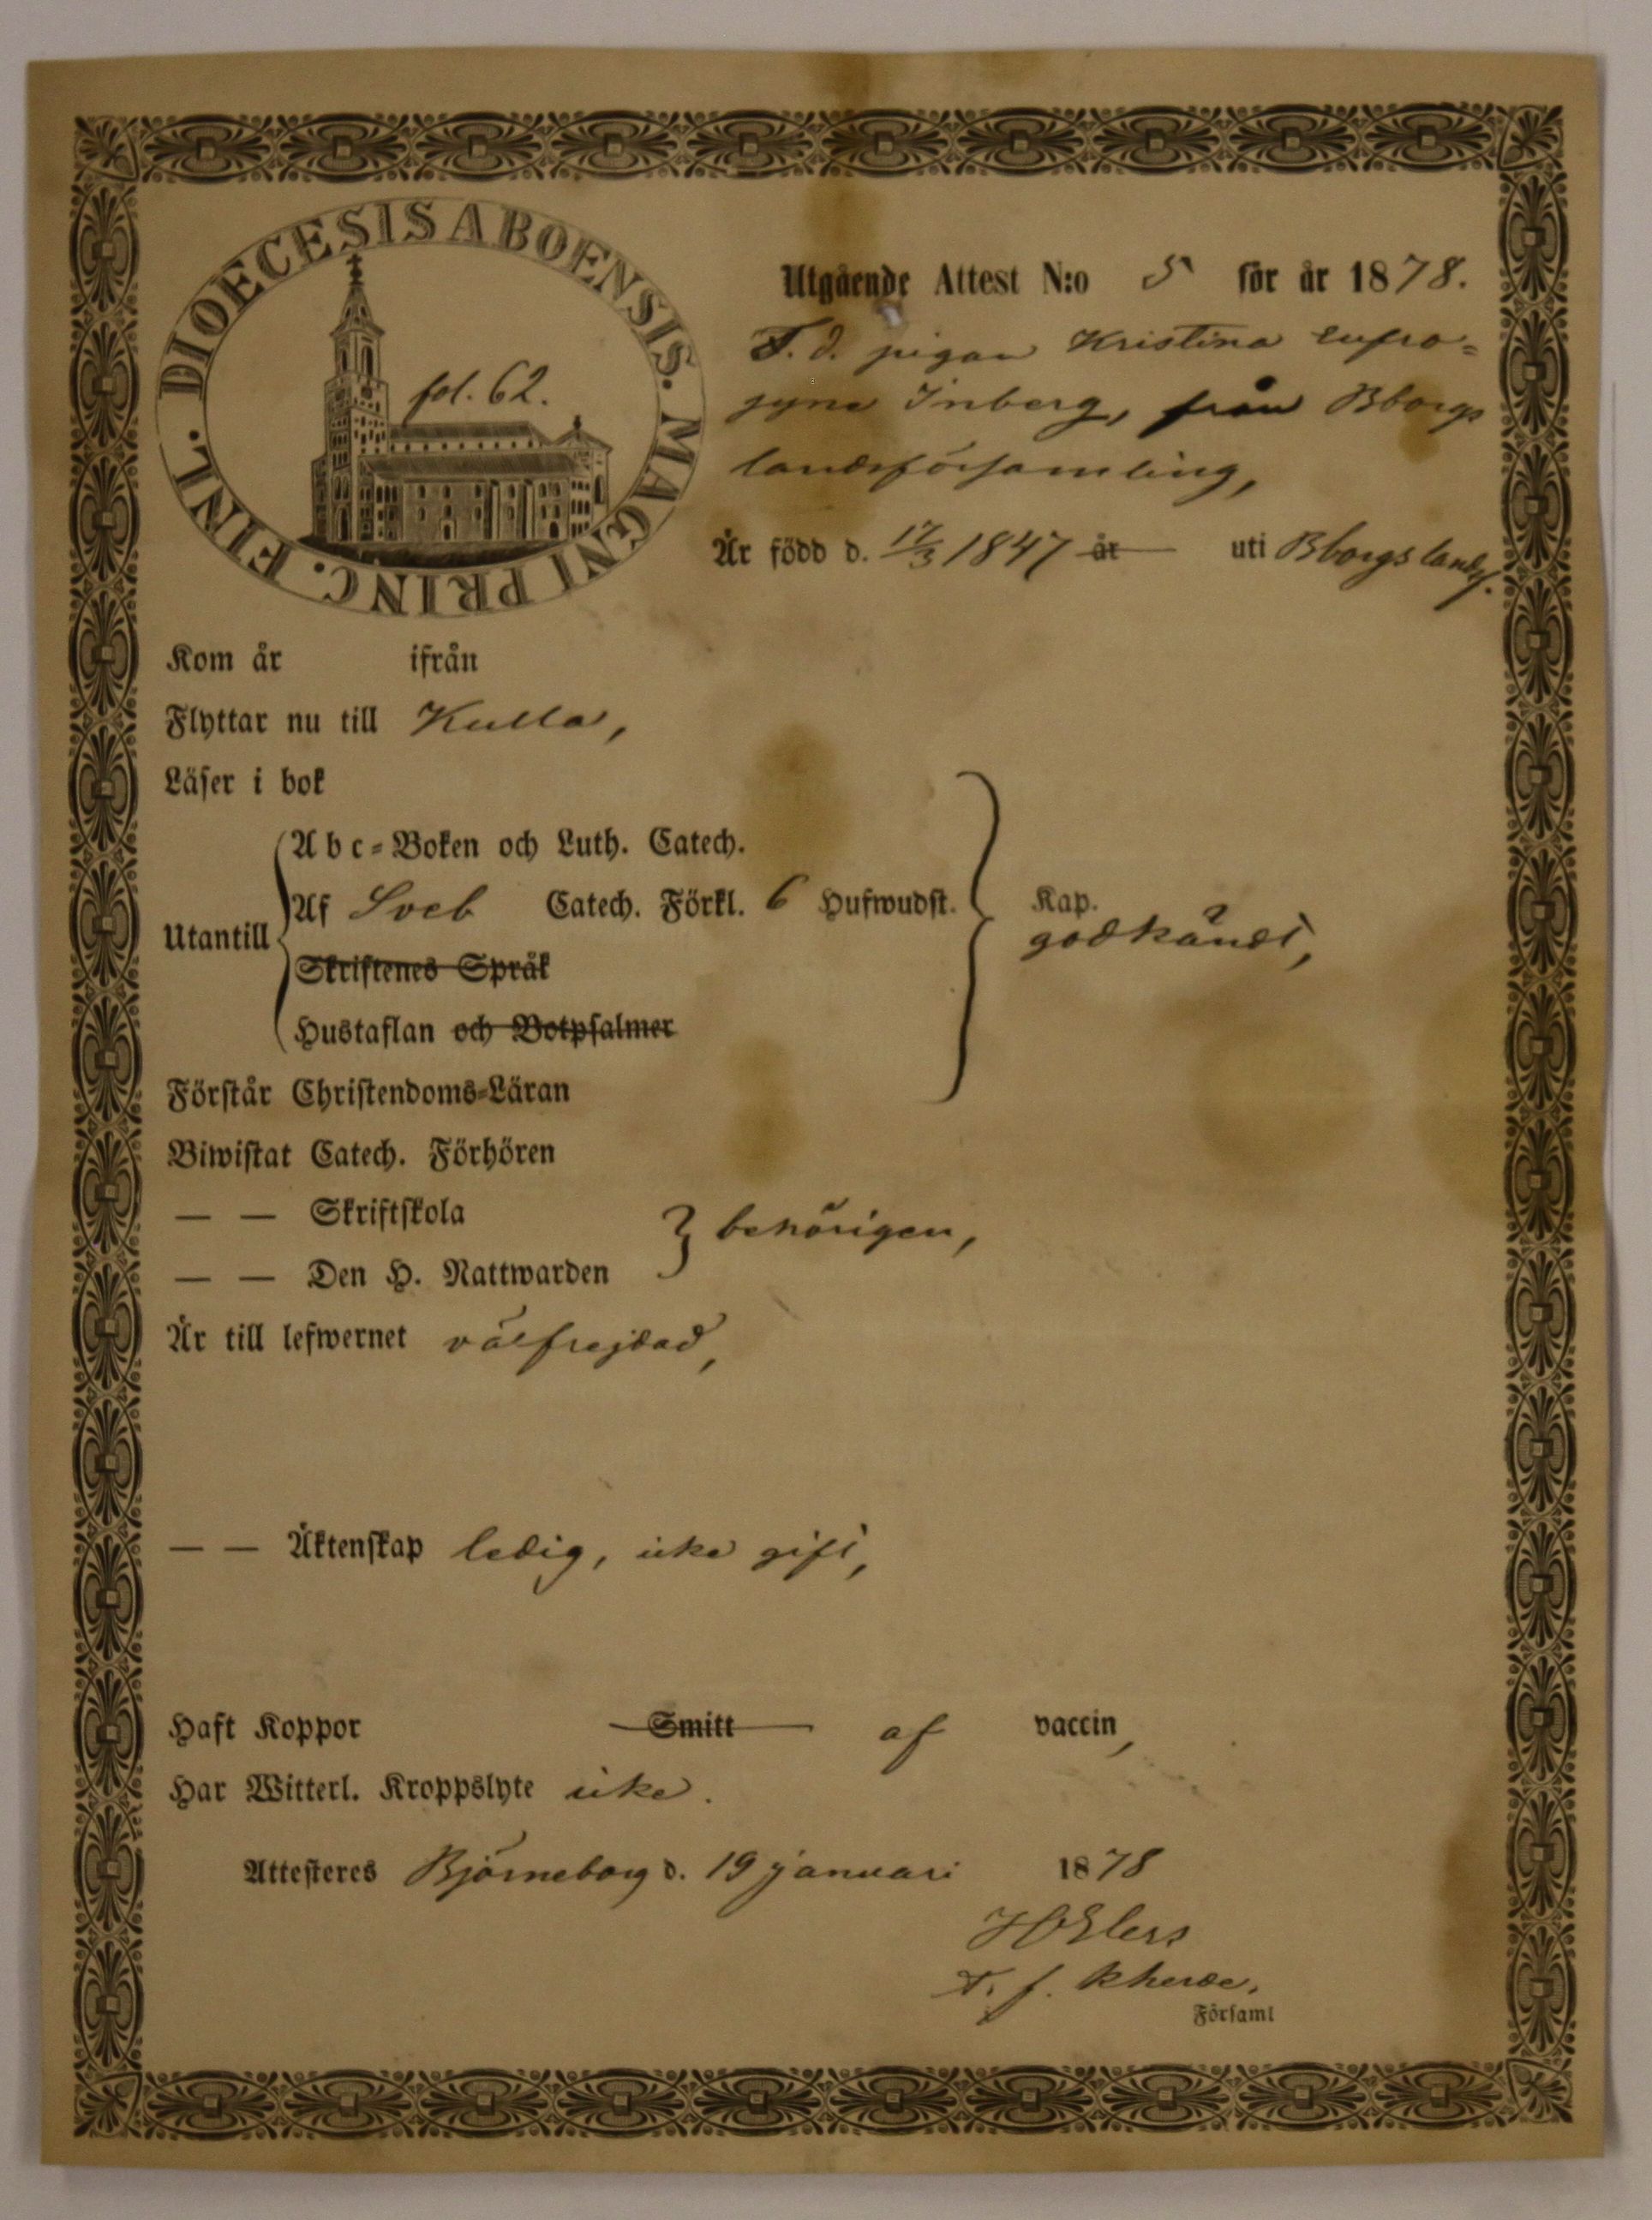 DIOECESIS ABOENSIS. MAGNI PRINC. FINL.
fol. 62.
Utgående Attest N:o 5 för år 1878.
F. d. pigan Kristina Eufro=
syne Inberg, från Bborgs
landsförsamling,
Är född d. 17/3 1847 år uti Bborgs landsf.
Kom år ifrån
Flyttar nu till Kulla,
Läser i bok
Utantill
Abc=Boken och Luth. Catech.
Af Sveb Catech. Förkl. 6 Hufwudst. Kap.
godkändt,
Skriftenes Språk
Hustaflan och Botpsalmer
Förstår Christendoms=Läran
Biwistat Catech. Förhören
— — Skriftskola
behörigen,
— — Den H. Nattwarden
Är till lefwernet välfrejdad,
— — Äktenskap ledig, icke gift,
Haft Koppor Smitt af vaccin,
Har Witterl. Kroppslyte icke.
Attesteres Björneborg d. 19 januari 1878
Elers
t. f. kherde.
Församl